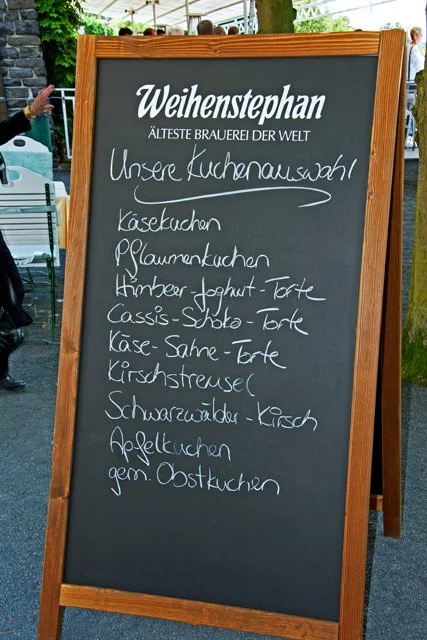 Weihenstephan
ÄLTESTE BRAUEREI DER WELT
Unsere Kuchenauswahl
Käsekuchen
Pflaumenkuchen
Himbeer-Joghurt-Torte
Cassis-Schoko-Torte
Käse-Sahne-Torte
Kirschstreusel
Schwarzwälder-Kirsch
Apfelkuchen
gem. Obstkuchen